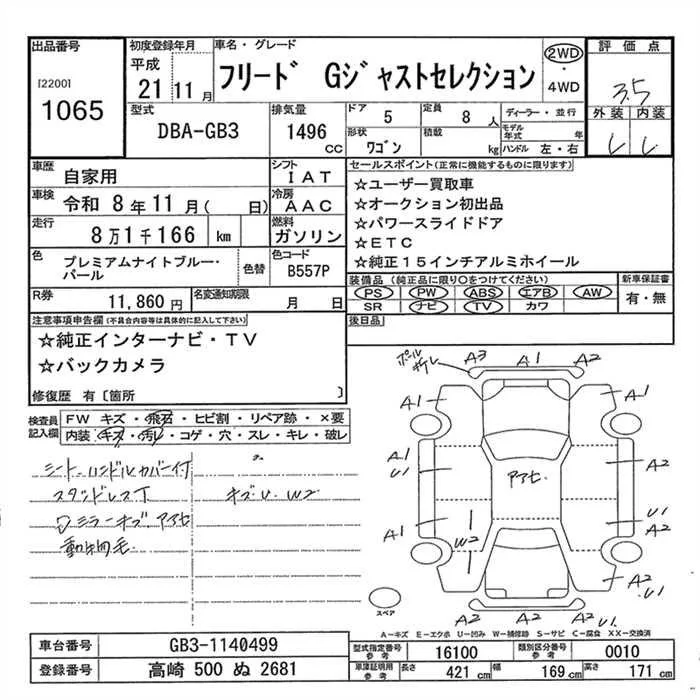 出品番号
[2200]
1065
初度登録年月
平成
21 11月
車名・グレード
フリード Gジャストセレクション
2WD
・
4WD
評価点
3.5
外装 内装
型式
DBA-GB3
排気量
1496 CC
ドア 5
定員 8 人
形状 ワゴン
積載 kg
ディーラー・並行
モデル年式 年
ハンドル 左・右
車歴 自家用
シフト IAT
車検 令和 8年11月( 日)
冷房 AAC
走行 8万1千166 km
燃料 ガソリン
色 プレミアムナイトブルー・パール
色替
色コード B557P
R券 11,860円
名変通知期限 月 日
セールスポイント(正常に機能するものに限ります)
☆ユーザー買取車
☆オークション初出品
☆パワースライドドア
☆ETC
☆純正15インチアルミホイール
装備品(純正品に限り○をつけてください)
PS PW ABS エアB AW
SR ナビ TV カワ
新車保証書
有・無
後日品
注意事項申告欄(不具合内容等は具体的に記入して下さい)
☆純正インターナビ・TV
☆バックカメラ
修復歴 有〔箇所 〕
検査員記入欄
FW キズ・飛石・ヒビ割・リペア跡・×要
内装・キズ・汚レ・コゲ・穴・スレ・キレ・破レ
シート、ハンドルカバー付
スタッドレスT
キズU、W2
ワミラーキズ、アアセ
動物毛
ポール
A3 A1 A2
A1 A1
A1 U1 アアセ A2
A1 W2 U1 A2
A2 U1
A2 A2 U1
スペア
A-キズ E-エクボ U-凹み W-補修跡 S-サビ C-腐食 XX-交換済
車台番号 GB3-1140499
登録番号 高崎 500 ぬ 2681
型式指定番号 参考 16100
類別区分番号 参考 0010
車庫証明用 参考 長さ 421 cm 幅 169 cm 高さ 171 cm